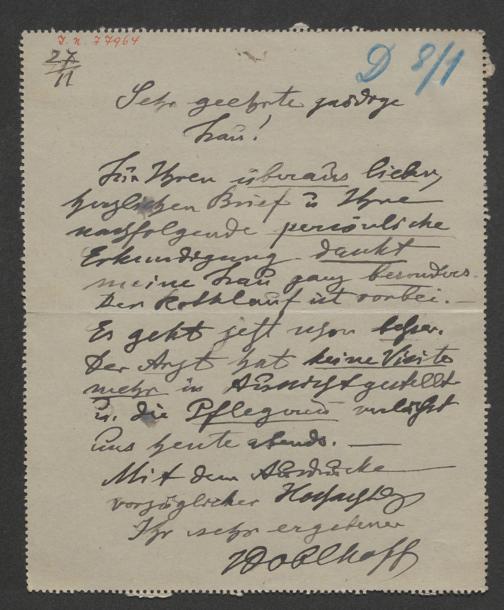 I. N. 77964
27
11
D 8/1
Sehr geehrte gnädige
Frau!
Für Ihren überaus lieben,
herzlichen Brief u Ihre
nachfolgende persönliche
Erkundigung dankt
meine Frau ganz besonders.
Der Rothlauf ist vorbei. —
Es geht jetzt schon besser.
Der Arzt hat keine Visite
mehr in Aussicht gestellt
u. die Pflegerin verläßt
uns heute abends. —
Mit dem Ausdrucke
vorzüglicher Hochachtg
Ihr sehr ergebener
Doblhoff